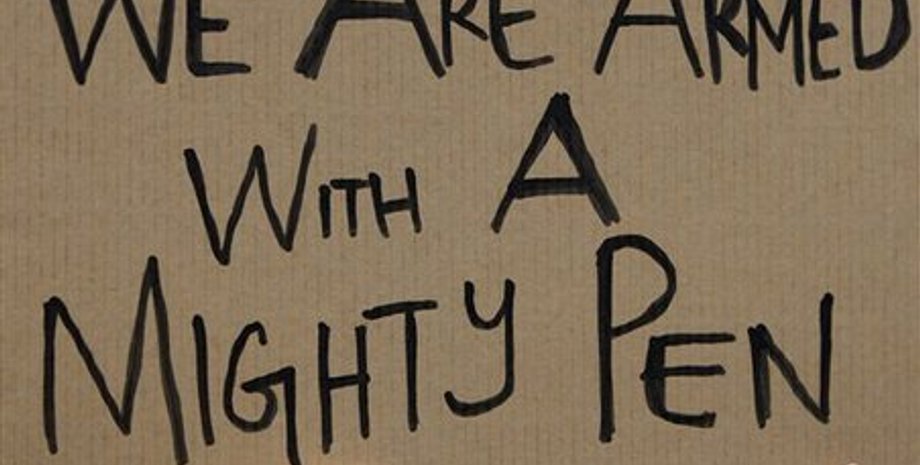 WE ARE ARMED
WITH A
MIGHTY PEN